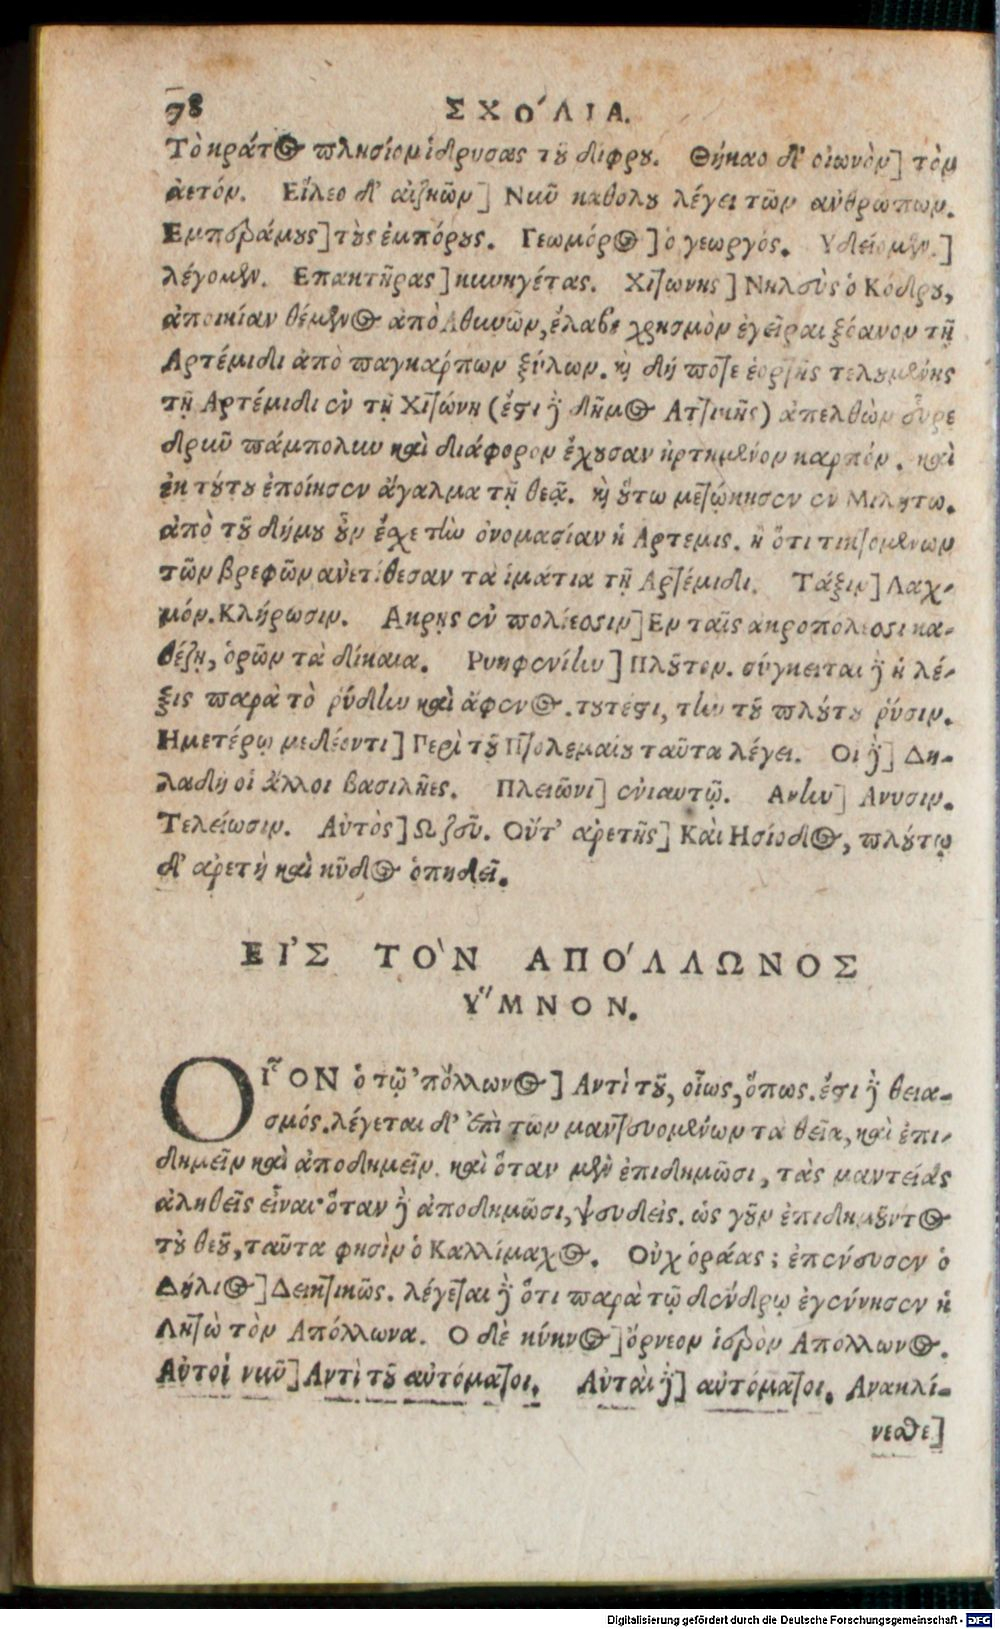 78 ΣΧΟ΄ΛΙΑ.
Τὸ κράτος πλησίον ἵδρυσας τοῦ δίφρου. Θήκαο δ' οἰωνὸν] τὸν
ἀετόν. Εἵλεο δ' αἰζηῶν] Νῦν καθόλου λέγει τῶν ἀνθρώπων.
Εμπεράμους] τοὺς ἐμπόρους. Γεωμόρος] ὁ γεωργός. Υδείομεν.]
λέγομεν. Επακτῆρας] κυνηγέτας. Χιτώνης] Νηλεὺς ὁ Κόδρου,
ἀποικίαν θέμενος ἀπὸ Αθηνῶν, ἔλαβε χρησμὸν ἐγεῖραι ξόανον τῇ
Αρτέμιδι ἀπὸ παγκάρπων ξύλων. καὶ δή ποτε ἑορτῆς τελουμένης
τῇ Αρτέμιδι ἐν τῇ Χιτώνη (ἔστι δὲ δῆμος Αττικῆς) ἀπελθὼν εὗρε
δρῦν πάμπολιν καὶ διάφορον ἔχουσαν ἠρτημένον καρπόν. καὶ
ἐκ τούτου ἐποίησεν ἄγαλμα τῇ θεᾷ. καὶ οὕτω μετῴκησεν ἐν Μιλήτω.
ἀπὸ τοῦ δήμου οὖν ἔσχε τὴν ὀνομασίαν ἡ Αρτεμις. ἢ ὅτι τικτομένων
τῶν βρεφῶν ἀνετίθεσαν τὰ ἱμάτια τῇ Αρτέμιδι. Τάξιν] Λαχ-
μόν. Κλήρωσιν. Ακρης ἐν πολίεσσιν] Εν ταῖς ἀκροπόλεσι κα-
θέζῃ, ὁρῶν τὰ δίκαια. Ρυηφενίην] Πλοῦτον. σύγκειται δὲ ἡ λέ-
ξις παρὰ τὸ ῥύδην καὶ ἄφενος. τουτέστι, τὴν τοῦ πλούτου ῥύσιν.
Ημετέρῳ μεδέοντι] Περὶ τοῦ Πτολεμαίου ταῦτα λέγει. Οι δὲ] Δη-
λαδὴ οἱ ἄλλοι βασιλῆες. Πλειῶνι] ἐνιαυτῷ. Ανην] Ανυσιν.
Τελείωσιν. Αὐτὸς] Ω ζεῦ. Οὔτ' ἀρετῆς] Καὶ Ησίοδος, πλούτῳ
δ' ἀρετὴ καὶ κῦδος ὀπηδεῖ.
ΕΙ'Σ ΤΟ`Ν ΑΠΟ΄ΛΛΩΝΟΣ
Υ῞ΜΝΟΝ.
ΟΙ῟ΟΝ ὁ τᾦ 'πόλλωνος] Αντὶ τοῦ, οἵως, ὅπως. ἔστι δὲ θεια-
σμός. λέγεται δ' ἐπὶ τῶν μαντευομένων τὰ θεῖα, καὶ ἐπι-
δημεῖν καὶ ἀποδημεῖν. καὶ ὅταν μὲν ἐπιδημῶσι, τὰς μαντείας
ἀληθεῖς εἶναι· ὅταν δὲ ἀποδημῶσι, ψευδεῖς. ὡς γοῦν ἐπιδημοῦντος
τοῦ θεοῦ, ταῦτα φησὶν ὁ Καλλίμαχος. Οὐχ ὁράας; ἐπένευσεν ὁ
Δήλιος] Δεικτικῶς. λέγεται δὲ ὅτι παρὰ τῷ δένδρῳ ἐγέννησεν ἡ
Λητὼ τὸν Απόλλωνα. Ο δὲ κύκνος] ὄρνεον ἱερὸν Απόλλωνος.
Αὐτοὶ νῦν] Αντὶ τοῦ αὐτόματοι. Αὐταὶ δὲ] αὐτόματοι. Ανακλί-
νεσθε]
Digitalisierung gefördert durch die Deutsche Forschungsgemeinschaft - DFG